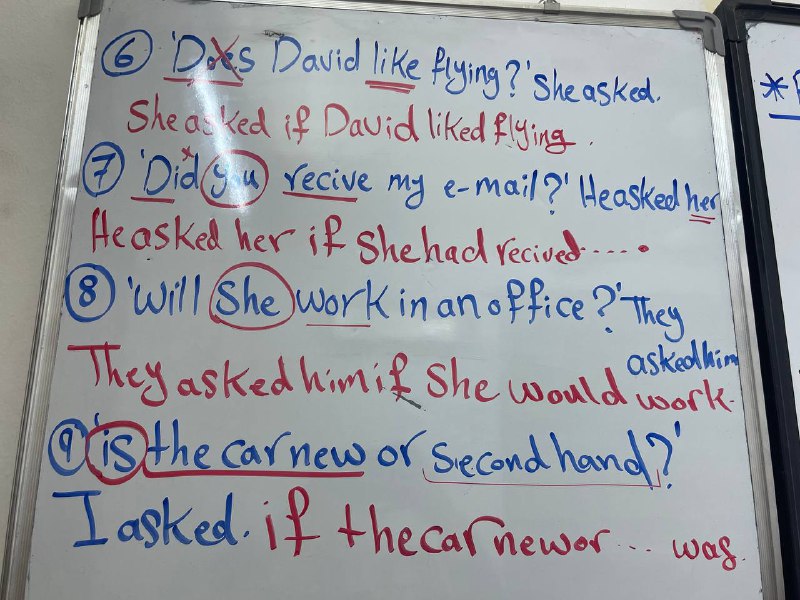 ⑥ 'Does David like flying?' She asked.
She asked if David liked flying.
⑦ 'Did you recive my e-mail?' He asked her
He asked her if she had recived.....
⑧ 'Will she work in an office?' They
asked him
They asked him if she would work.
⑨ 'is the car new or second hand?'
I asked. if the car new or ... was.
*